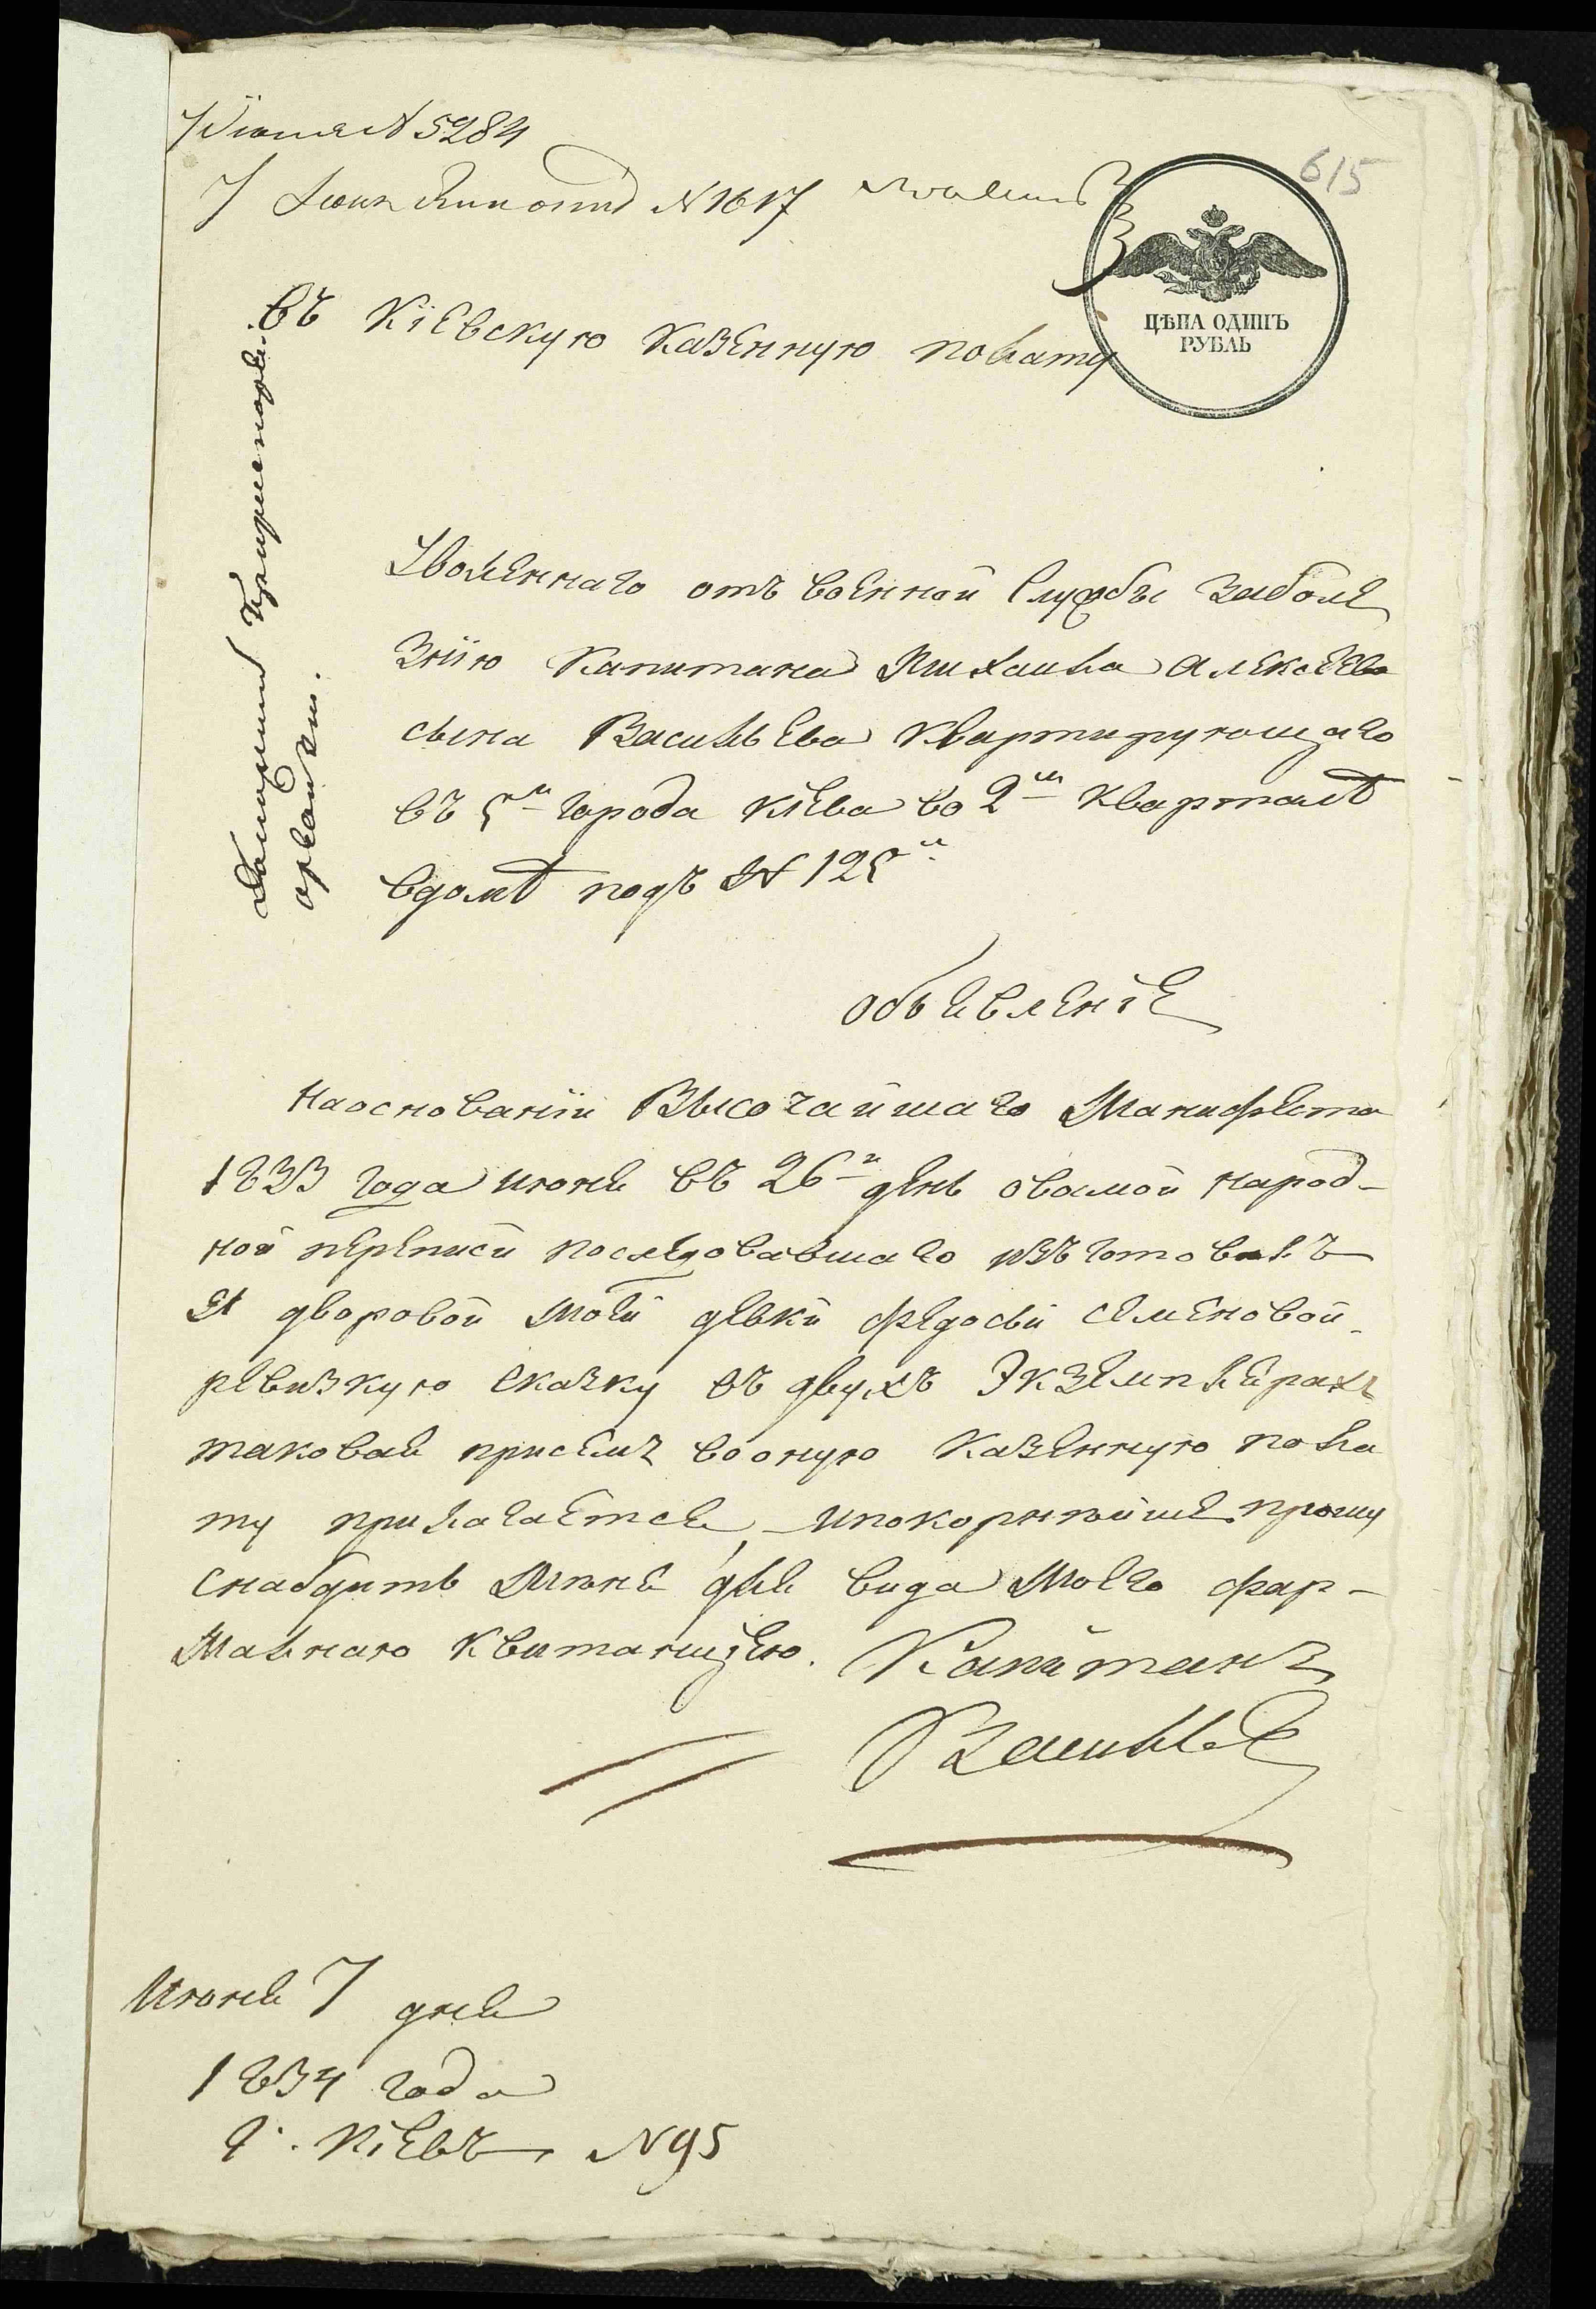 7 Июня № 5284
615
7 Июня № 1617
ЦѢНА ОДИНЪ
РУБЛЬ
въ Кіевскую Казенную полату
Уволеннаго отъ военной Службы заболе
зніею Капитана Михаила Алексеева
сына Васильева Квартирующаго
въ 5й города Кіева во 2м Кварталѣ
вдомѣ подъ № 125м
объявленіе
Наоснованіи Высочайшаго Манифеста
1833 года июня въ 26й день овамой народ-
ной переписи последовавшаго изъготовилъ
Я дворовой Моей девки Федосьи Семеновой
ревизкую сказку въ двухъ Экземплярахъ
таковая присемъ вооную Казенную пола
ту прилагается, ипокорнейше прошу
снабдить Мѣня для вида Моего фар-
Мальнаю Квитанціею. Капитанъ
Васильев
Июня 7 дня
1834 года
г. Кіевъ № 95